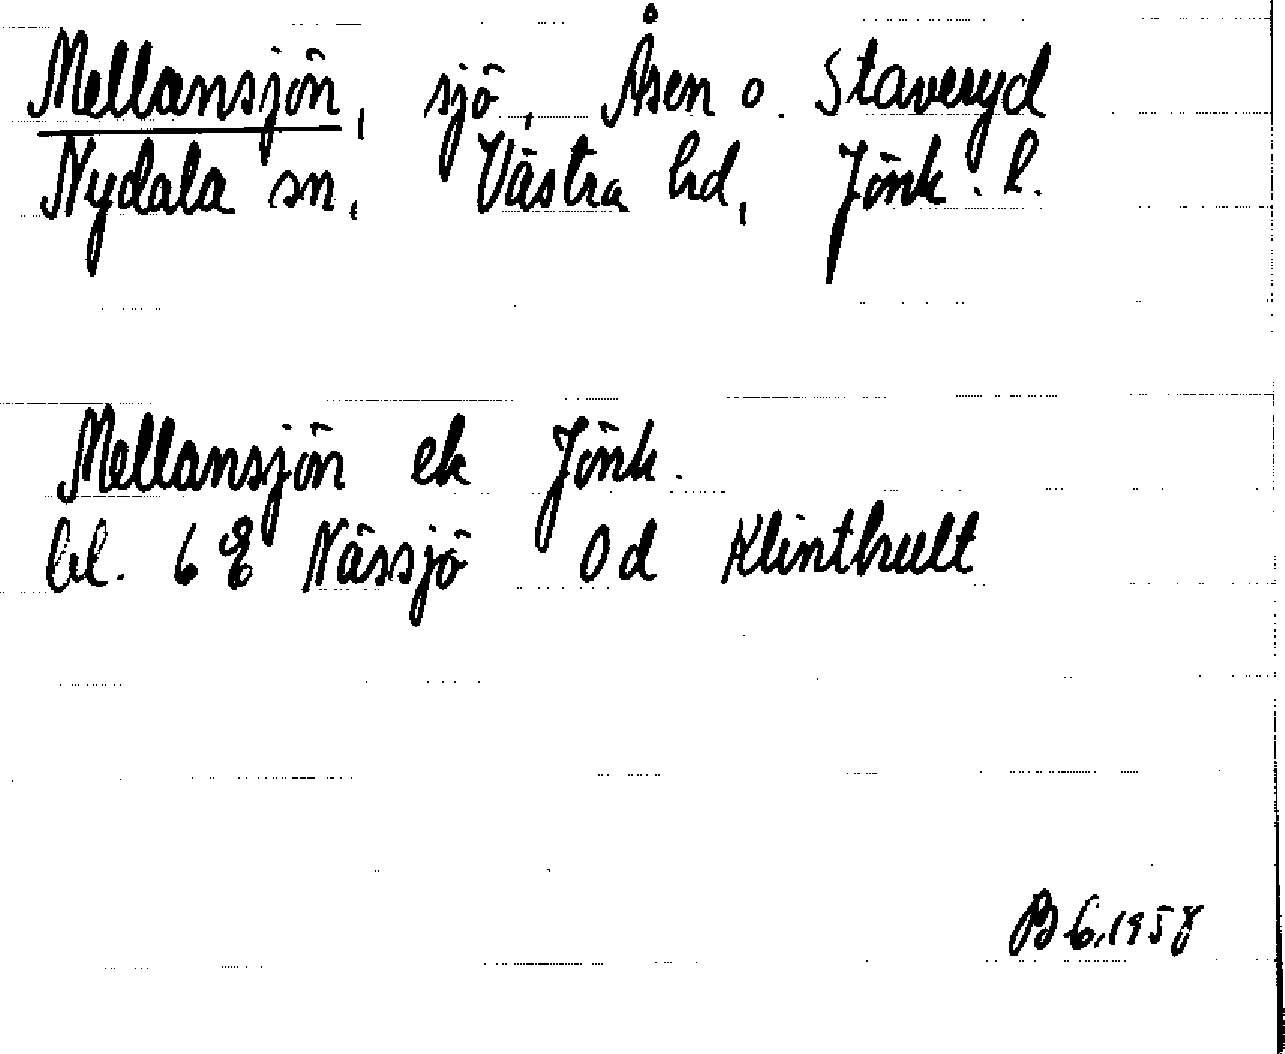 Mellansjön, sjö, Åsen o. Staveryd
Nydala sn, Västra hd, Jönk. l.
Mellansjön ek Jönk.
bl. 6 E Nässjö 0 d Klinthult